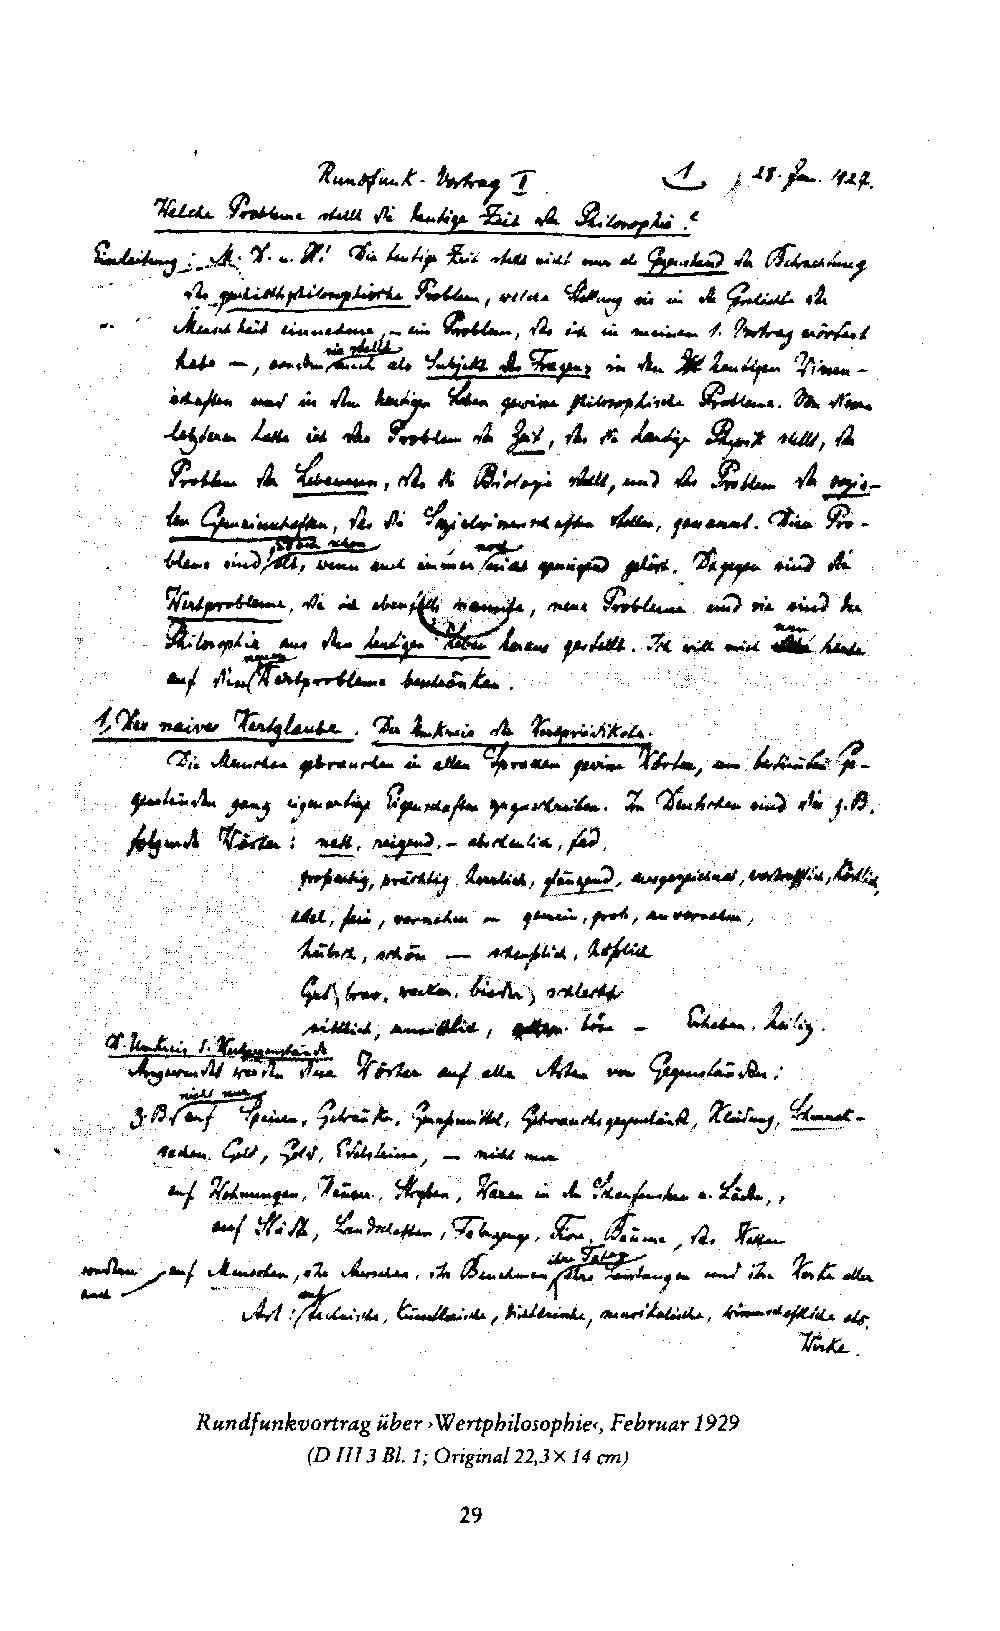 Rundfunk-Vortrag II 1 28. Jan. 1929.
Welche Probleme stellt die heutige Zeit der Philosophie?
Einleitung: M. D. u. H! Die heutige Zeit stellt nicht nur als Gegenstand der Betrachtung
das geschichtsphilosophische Problem, welche Stellung wir in der Geschichte der
Menschheit einnehmen, – ein Problem, das ich in meinem 1. Vortrag erörtert
habe –, sondern sie stellt auch als Subjekt des Fragens in den heutigen Wissen-
schaften und in dem heutigen Leben gewisse philosophische Probleme. Von
letzteren hatte ich das Problem der Zeit, das die heutige Physik stellt, das
Problem des Lebewesens, das die Biologie stellt, und das Problem der sozia-
len Gemeinschaften, das die Sozialwissenschaften stellen, genannt. Diese Pro-
bleme sind doch schon alt, wenn auch immer noch nicht genügend gelöst. Dagegen sind die
Wertprobleme, die ich ebenfalls nannte, neue Probleme und sie sind der
Philosophie aus dem heutigen Leben heraus gestellt. Ich will mich nun heute
auf diese neuen Wertprobleme beschränken.
1. Der naive Wertglaube. Der Umkreis der Wertprädikate.
Die Menschen gebrauchen in allen Sprachen gewisse Wörter, um bestimmten Ge-
genständen ganz eigenartige Eigenschaften zuzuschreiben. Im Deutschen sind dies z.B.
folgende Wörter: nett, reizend, – abscheulich, fad,
großartig, prächtig, herrlich, glänzend, ausgezeichnet, vortrefflich, köstlich,
edel, fein, vornehm – gemein, grob, unvornehm,
hübsch, schön — scheußlich, häßlich
Gut, brav, wacker, bieder, schlecht
sittlich, unsittlich, böse – Erhaben, heilig.
D. Umkreis d. Wertgegenstände
Angewendet werden diese Wörter auf alle Arten von Gegenständen:
z.B. nicht nur auf Speisen, Getränke, Genußmittel, Gebrauchsgegenstände, Kleidung, Schmuck-
sachen, Geld, Gold, Edelsteine, – nicht nur
auf Wohnungen, Häuser, Straßen, Waren in den Schaufenstern u. Läden,
auf Städte, Landschaften, Fahrzeuge, Tiere, Bäume, das Wetter
sondern auch auf Menschen, ihr Aussehen, ihr Benehmen, ihre Leistungen und ihre Werke aller
Art: auf technische, künstlerische, dichterische, musikalische, wissenschaftliche etc.
Werke.
Rundfunkvortrag über ›Wertphilosophie‹, Februar 1929
(D III 3 Bl. 1; Original 22,3 × 14 cm)
29